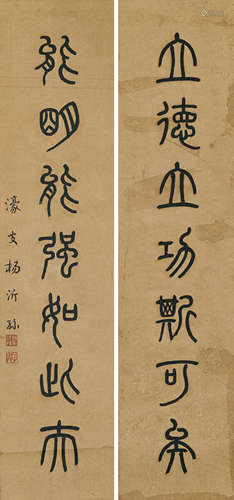 立德立功斯可矣
能明能强如此夫
濠叟杨沂孙